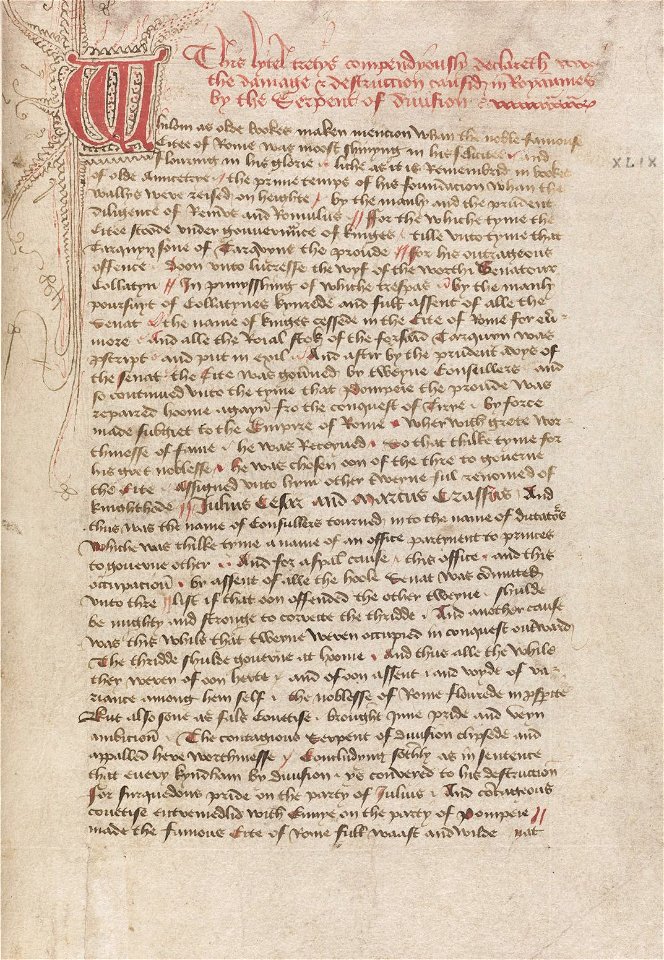 This lytel tretys compendyously declareth
the damage & destruccion causid in Royaumes
by the Serpent of diuision
Whilom as olde bookes maken mention whan the noble famouse
Citee of Rome was moost shinyng in his felicitee / and
flouring in his glorie / liche as it is Remembrid in bookes
of olde Auncetre / the prime temps of his foundacion whan the
wallys were reised on heighte / by the manly and the prudent
diligence of Remus and Romulus // ffor the whiche tyme the
Citee stoode vnder gouuernance of kinges / tille vnto tyme that
Tarquyn sone of Tarquyne the proude // for his outrageous
offence / doon vnto lucresse the wyf of the worthi Senatour
Collatyn // In punysshing of whiche trespas / by the manly
poursuyt of Collatynes kynrede and full assent of alle the
Senat / the name of kinges cessede in the Cite of Rome for euer
more / And alle the Roial stok of the forsaid Tarquyn was
proscript / and put in exil / And aftir by the prudent avys of
the Senat the Cite was gouerned by tweyne Consullers / and
so continued vnto the tyme that Pompeie the proude was
repaired hoome agayn fro the conquest of Tirye / by force
made subgiet to the Empire of Rome / wher with grete wor
thinesse of fame / he was Receyued / So that thilke tyme for
his gret noblesse / he was chosen oon of the thre to gouerne
the Cite / Assigned vnto hym other tweyne ful renomed of
knighthede // Julius Cesar and Marcus Crassus / And
thus was the name of Consullers tourned in to the name of dictatores
Whiche was thilke tyme a name of an office partinent to princes
to gouerne other / And for a special cause / this office / and this
occupacion / by assent of alle the hoole Senat was committed
vnto thre / list if that oon offended the other tweyne / shulde
be myghty and stronge to correcte the thridde / And another cause
was this while that tweyne weren occupied in conquest outward
The thridde shulde gouerne at hoome / And thus alle the while
they weren of oon herte / and of oon assent / and voyde of va
riance among hem self / the noblesse of Rome flourede in prosperite
But also sone as fals Couetise / brought Inne pride and veyn
ambicion / The contagious Serpent of diuision clipsede and
appalled here worthinesse / Concludyng sothly as in sentence
that euery kyngdham by diuision / ys conuered to his destruccion
For surquedous pride on the party of Julius / And courageous
couetise entremedlid with Enuye on the party of Pompeie //
made the famous Cite of Rome full waast and wilde nat
XLIX